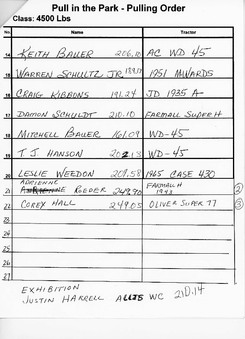 Pull in the Park - Pulling Order
Class: 4500 Lbs
No. Name Tractor
14 KEITH BAUER 206.10 AC WD 45
15 WARREN SCHULTZ JR. 189.17 1951 MWARDS
16 CRAIG KIBBONS 191.24 JD 1935 A
17 DAMON SCHULDT 210.10 FARMALL SUPER H
18 MITCHELL BAUER 161.09 WD-45
19 T.J. HANSON WD-45
20 LESLIE WEEDON 209.58 1965 CASE 430
21 ADRIENNE RODDER 249.90 FARMALL H 1943 2
22 COREY HALL 249.05 OLIVER SUPER 77 3
23
24
25
26
27
EXHIBITION
JUSTIN HARRELL ALLIS WC 210.14